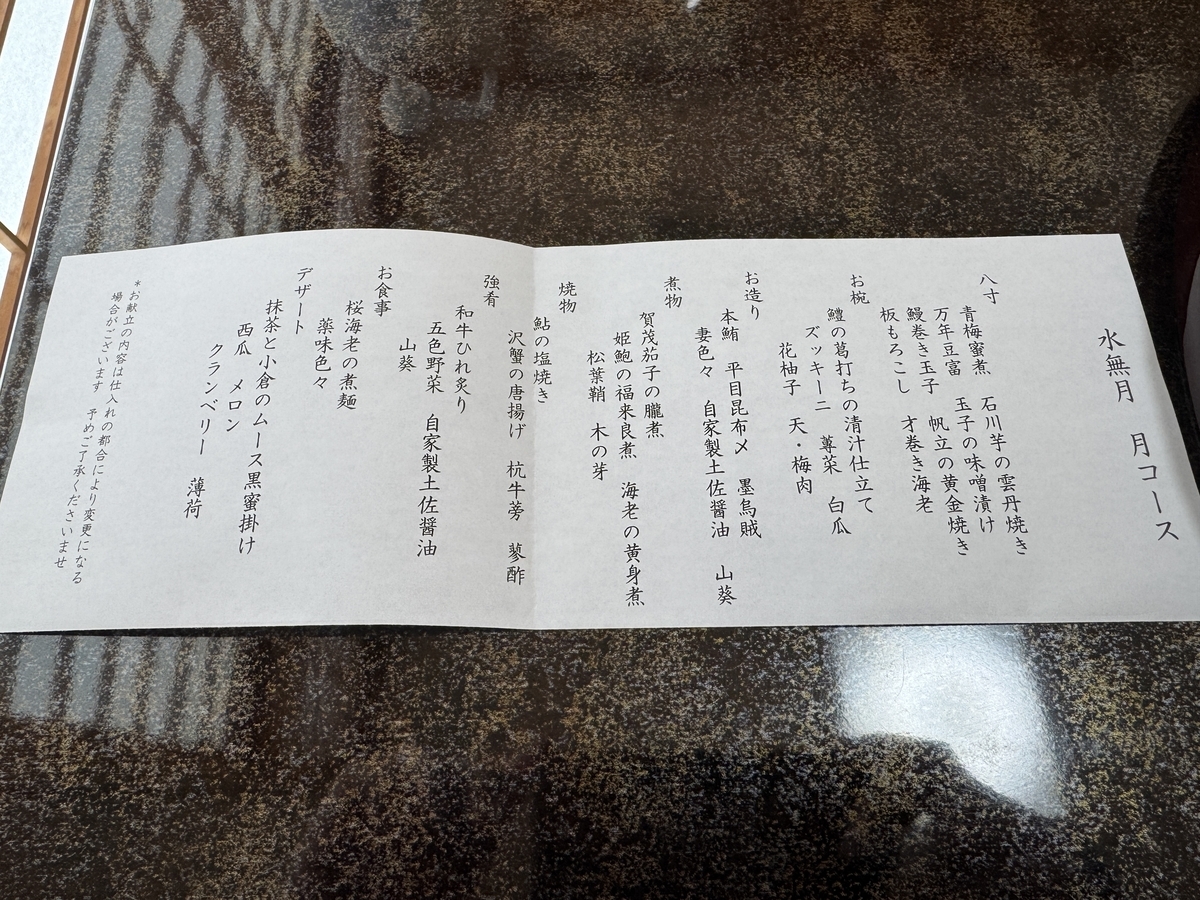 水無月　月コース
八寸
青梅蜜煮　石川芋の雲丹焼き
万年豆富　玉子の味噌漬け
鰻巻き玉子　帆立の黄金焼き
板もろこし　才巻き海老
お椀
鱧の葛打ちの清汁仕立て
ズッキーニ　蓴菜　白瓜
花柚子　天・梅肉
お造り
本鮪　平目昆布〆　墨烏賊
妻色々　自家製土佐醤油　山葵
煮物
賀茂茄子の朧煮
姫鮑の福来良煮　海老の黄身煮
松葉鞘　木の芽
焼物
鮎の塩焼き
沢蟹の唐揚げ　杭牛蒡　蓼酢
強肴
和牛ひれ炙り
五色野菜　自家製土佐醤油
山葵
お食事
桜海老の煮麺
薬味色々
デザート
抹茶と小倉のムース黒蜜掛け
西瓜　メロン
クランベリー　薄荷
*お献立の内容は仕入れの都合により変更になる
場合がございます　予めご了承くださいませ